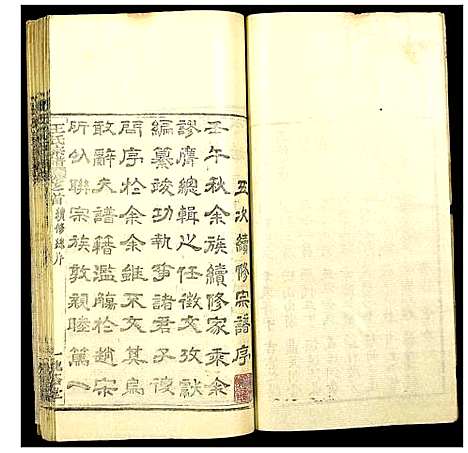 五次續修宗譜序
壬午秋余族續修家乘余
謬膺總輯之任徵文攷獻
編纂竣功執事諸君子復
問序於余余雖不文其烏
敢辭夫譜籍濫觴於趙宋
所以聯宗族敦親睦篤人
王氏宗譜 卷首 續修譜序 一